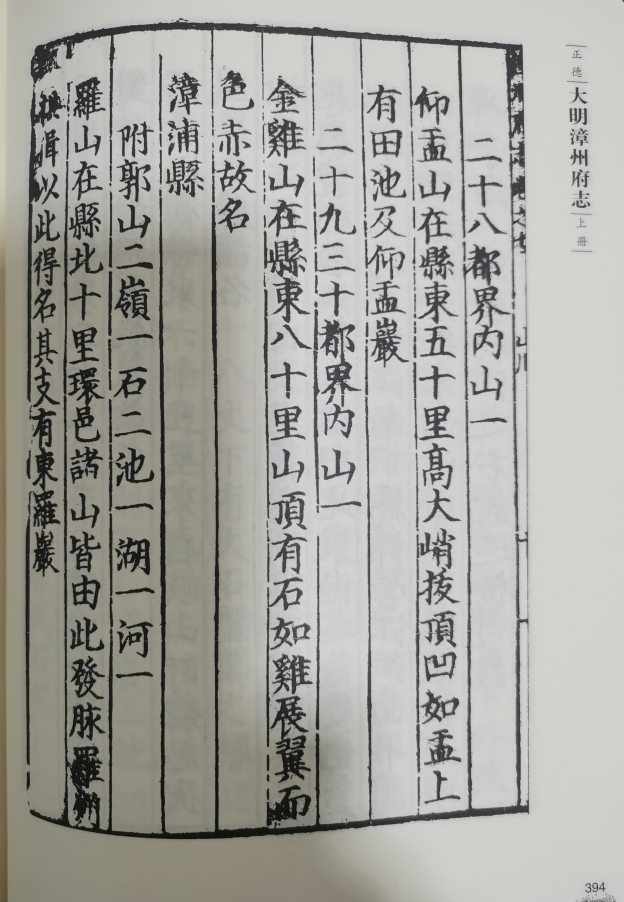 正德
大明漳州府志
上冊
山川
二十八都界内山一
仰盂山在縣東五十里髙大峭拔頂凹如盂上
有田池及仰盂巖
二十九三十都界内山一
金雞山在縣東八十里山頂有石如雞展翼而
色赤故名
漳浦縣
附郭山二嶺一石二池一湖一河一
羅山在縣北十里環邑諸山皆由此發脉羅
以此得名其支有東羅巖
394